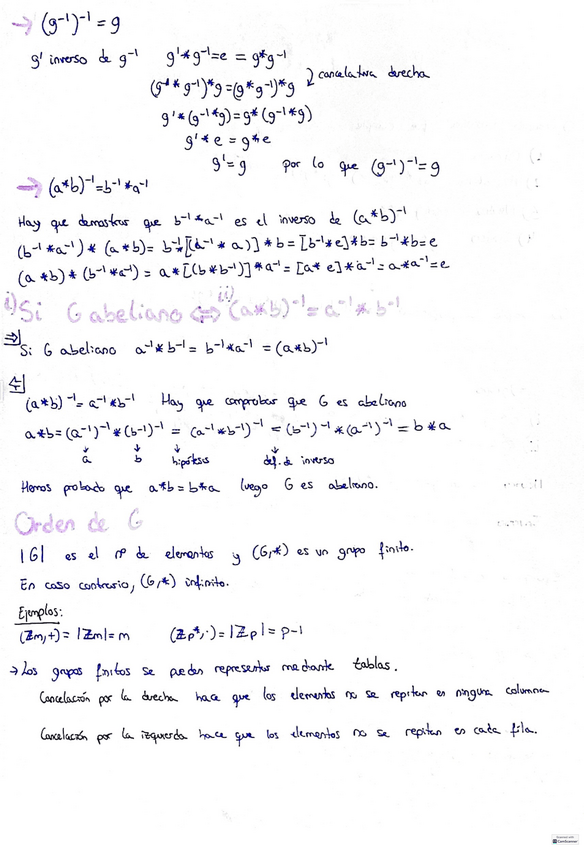 → (g⁻¹)⁻¹ = g
g' inverso de g⁻¹ g' * g⁻¹ = e = g * g⁻¹
(g' * g⁻¹) * g = (g * g⁻¹) * g cancelativa derecha
g' * (g⁻¹ * g) = g * (g⁻¹ * g)
g' * e = g * e
g' = g por lo que (g⁻¹)⁻¹ = g
→ (a * b)⁻¹ = b⁻¹ * a⁻¹
Hay que demostrar que b⁻¹ * a⁻¹ es el inverso de (a * b)⁻¹
(b⁻¹ * a⁻¹) * (a * b) = b⁻¹ * [(a⁻¹ * a)] * b = [b⁻¹ * e] * b = b⁻¹ * b = e
(a * b) * (b⁻¹ * a⁻¹) = a * [(b * b⁻¹)] * a⁻¹ = [a * e] * a⁻¹ = a * a⁻¹ = e
i) Si G abeliano ⇔ ii) (a * b)⁻¹ = a⁻¹ * b⁻¹
⇒|
Si G abeliano a⁻¹ * b⁻¹ = b⁻¹ * a⁻¹ = (a * b)⁻¹
⇐|
(a * b)⁻¹ = a⁻¹ * b⁻¹ Hay que comprobar que G es abeliano
a * b = (a⁻¹)⁻¹ * (b⁻¹)⁻¹ = (a⁻¹ * b⁻¹)⁻¹ = (b⁻¹)⁻¹ * (a⁻¹)⁻¹ = b * a
↓ a ↓ b ↓ hipótesis ↓ def. de inverso
Hemos probado que a * b = b * a luego G es abeliano.
Orden de G
|G| es el nº de elementos y (G, *) es un grupo finito.
En caso contrario, (G, *) infinito.
Ejemplos:
(ℤm, +) = |ℤm| = m (ℤp*, ·) = |ℤp| = p-1
→ Los grupos finitos se pueden representar mediante tablas.
Cancelación por la derecha hace que los elementos no se repitan en ninguna columna
Cancelación por la izquierda hace que los elementos no se repitan en cada fila.